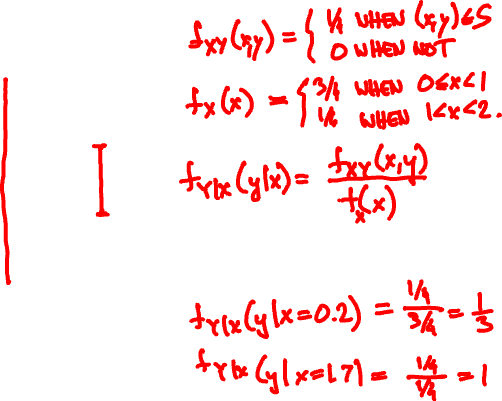 f_XY(x,y) = { 1/4 WHEN (x,y) ∈ S
0 WHEN NOT
f_X(x) = { 3/4 WHEN 0≤x<1
1/4 WHEN 1<x<2.
f_Y|X(y|x) = f_XY(x,y) / f_X(x)
f_Y|X(y|x=0.2) = 1/4 / 3/4 = 1/3
f_Y|X(y|x=1.7) = 1/4 / 1/4 = 1